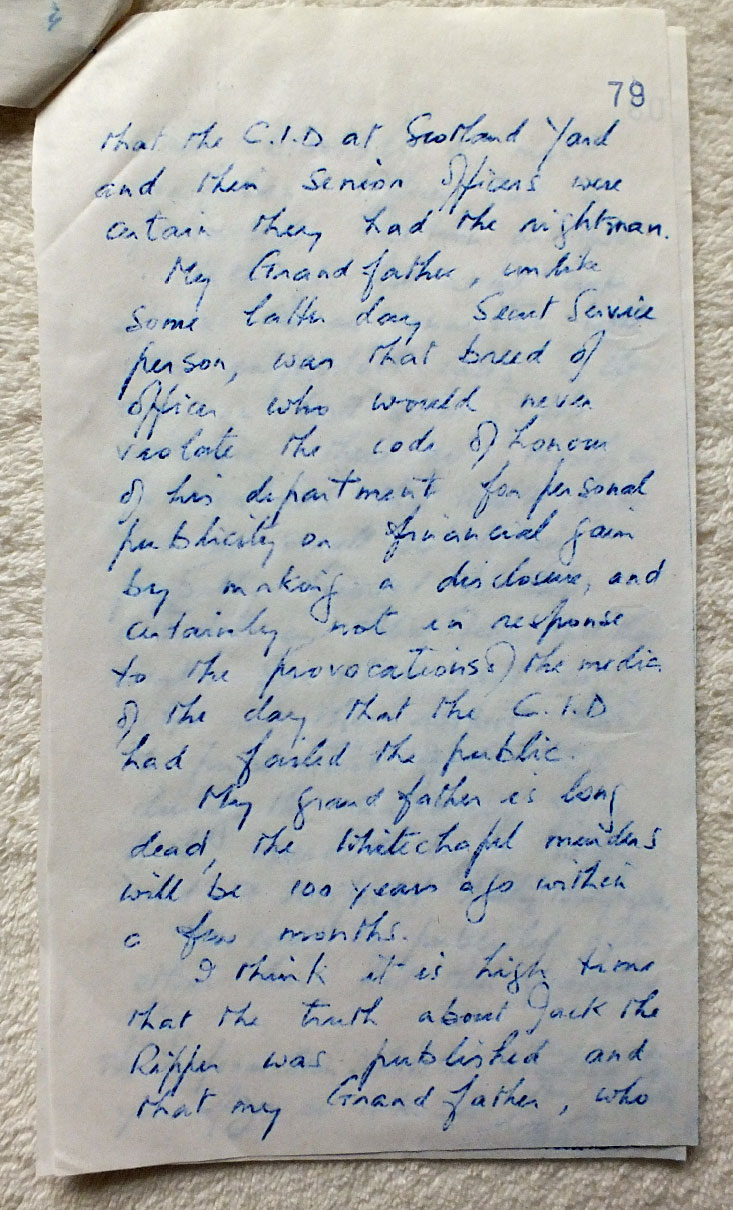 79
that the C.I.D at Scotland Yard
and their Senior Officers were
certain they had the right man.
My Grandfather, unlike
some latter day Secret Service
person, was that breed of
officer who would never
violate the code of honour
of his department for personal
publicity or financial gain
by making a disclosure, and
certainly not in response
to the provocations of the media
of the day that the C.I.D
had failed the public.
My grandfather is long
dead, the Whitechapel murders
will be 100 years ago within
a few months.
I think it is high time
that the truth about Jack the
Ripper was published and
that my Grandfather, who